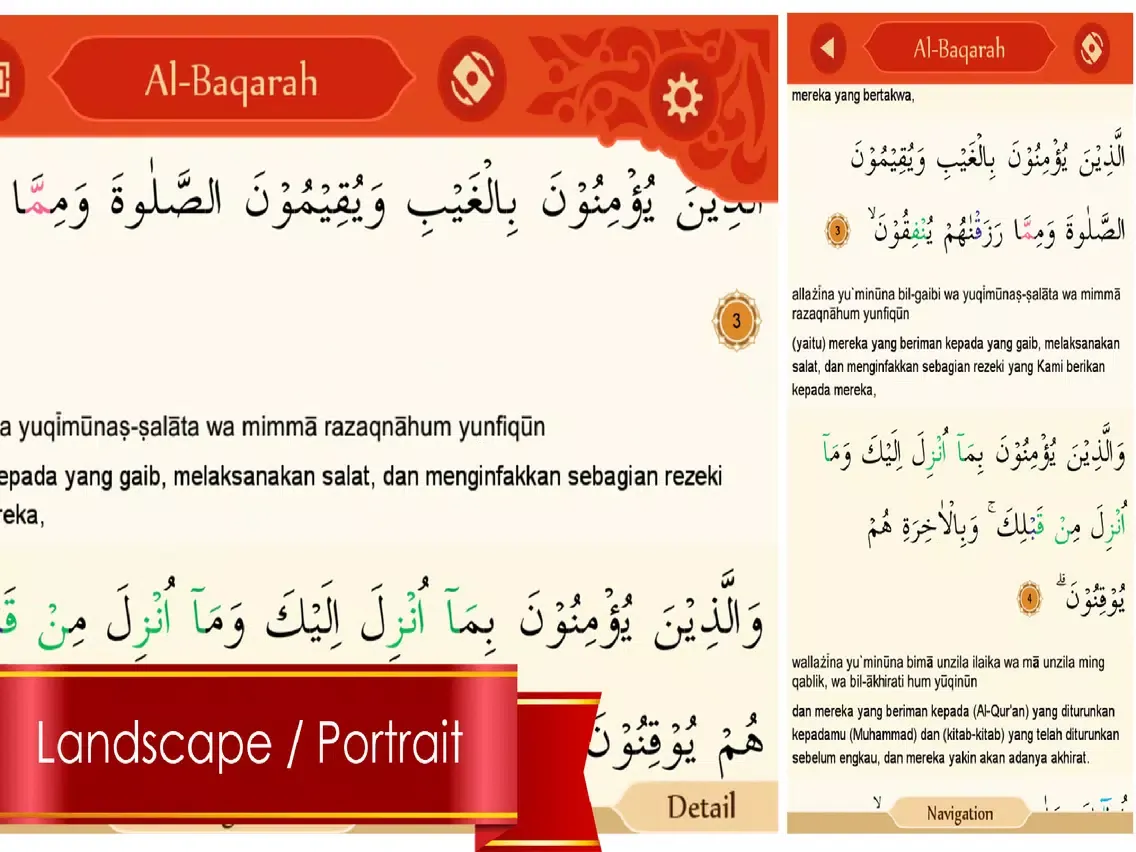 Al-Baqarah
الَّذِيْنَ يُؤْمِنُوْنَ بِالْغَيْبِ وَيُقِيْمُوْنَ الصَّلٰوةَ وَمِمَّا
3
a yuqīmūnaṣ-ṣalāta wa mimmā razaqnāhum yunfiqūn
epada yang gaib, melaksanakan salat, dan menginfakkan sebagian rezeki
reka,
وَالَّذِيْنَ يُؤْمِنُوْنَ بِمَآ اُنْزِلَ اِلَيْكَ وَمَآ اُنْزِلَ مِنْ قَ
هُمْ يُوْقِنُوْنَ
Landscape / Portrait
Detail
Al-Baqarah
mereka yang bertakwa,
الَّذِيْنَ يُؤْمِنُوْنَ بِالْغَيْبِ وَيُقِيْمُوْنَ
الصَّلٰوةَ وَمِمَّا رَزَقْنٰهُمْ يُنْفِقُوْنَ ۙ 3
allażīna yu`minūna bil-gaibi wa yuqīmūnaṣ-ṣalāta wa mimmā
razaqnāhum yunfiqūn
(yaitu) mereka yang beriman kepada yang gaib, melaksanakan
salat, dan menginfakkan sebagian rezeki yang Kami berikan
kepada mereka,
وَالَّذِيْنَ يُؤْمِنُوْنَ بِمَآ اُنْزِلَ اِلَيْكَ وَمَآ
اُنْزِلَ مِنْ قَبْلِكَ ۚ وَبِالْاٰخِرَةِ هُمْ
يُوْقِنُوْنَ ۗ 4
wallażīna yu`minūna bimā unzila ilaika wa mā unzila ming
qablik, wa bil-ākhirati hum yūqinūn
dan mereka yang beriman kepada (Al-Qur'an) yang diturunkan
kepadamu (Muhammad) dan (kitab-kitab) yang telah diturunkan
sebelum engkau, dan mereka yakin akan adanya akhirat.
Navigation